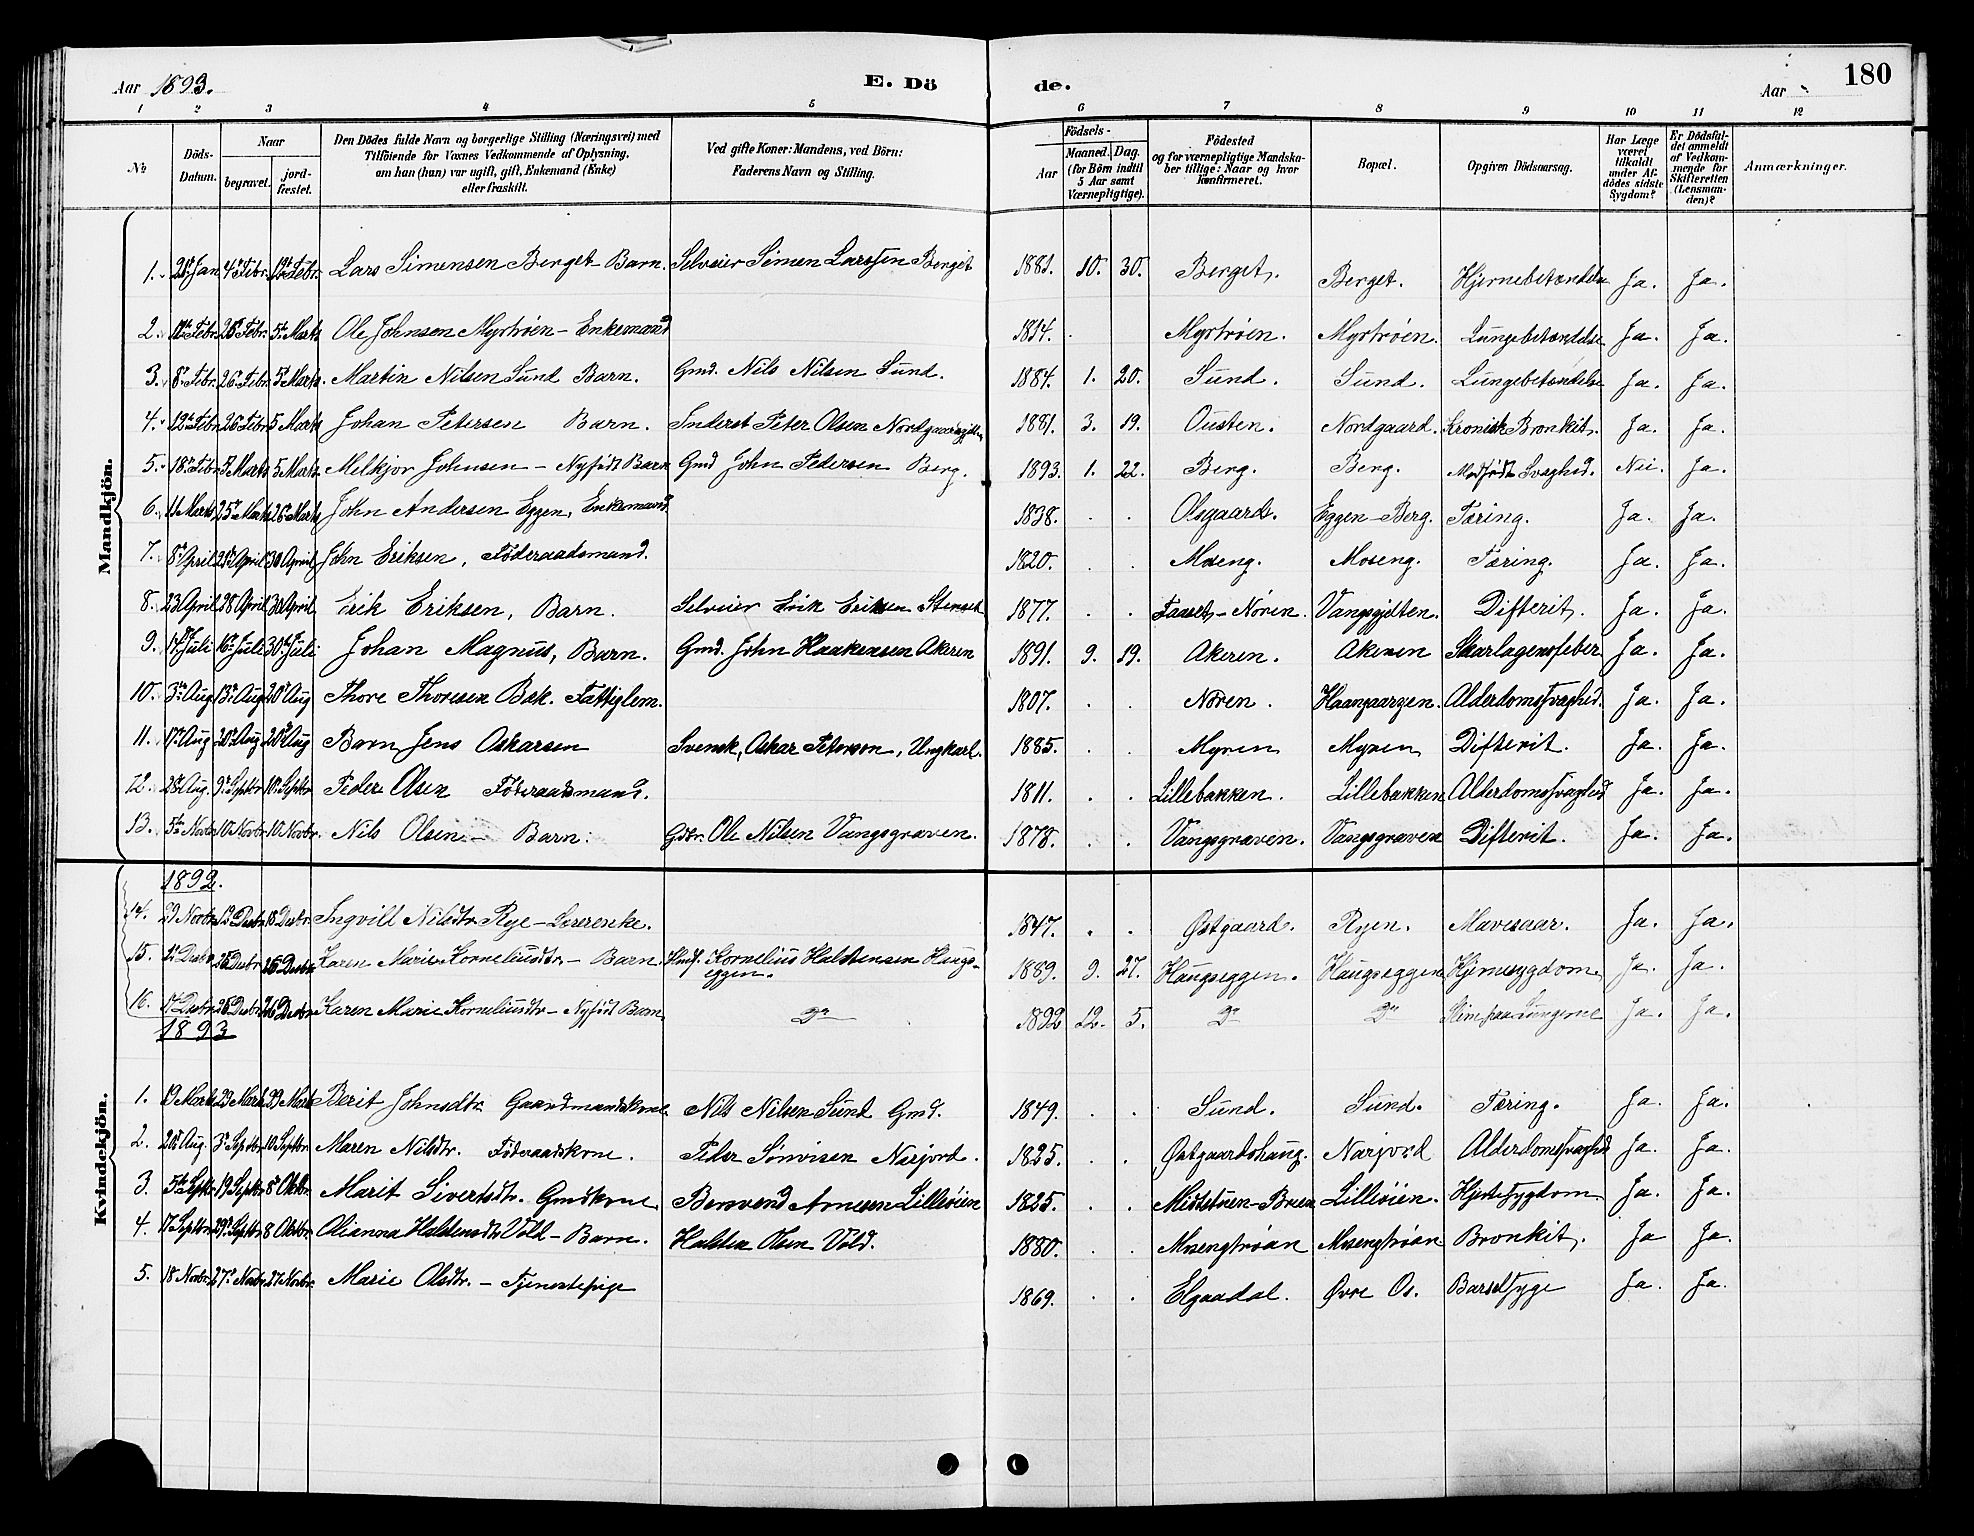 Aar 1893. E. Dö de. Aar 180
1 2 3 4 5 6 7 8 9 10 11 12
No Döds-Datum. Naar begravet. jord-fæstet. Den Dödes fulde Navn og borgerlige Stilling (Næringsvei) med Tilföiende for Voxnes Vedkommende af Oplysning, om han (hun) var ugift, gift, Enkemand (Enke) eller fraskilt. Ved gifte Koner: Mandens, ved Börn: Faderens Navn og Stilling. Födsels- Aar Maaned. Dag. (for Börn indtil 5 Aar samt Værnepligtige). Födested og for værnepligtige Mandska-ber tillige: Naar og hvor konfirmeret. Bopæl. Opgiven Dödsaarsag. Har Læge været tilkaldt under Af-dödes sidste Sygdom? Er Dödsfal-det anmeldt af Vedkom-mende for Skifteretten (Lensman-den)? Anmærkninger.
Mandkjön.
1. Jan 4de Febr. Febr. Lars Simensen Berget Barn. Selveier Simen Larssen Berget 1881. 10. 30. Berget. Berget. Hjernebetændelse Ja. Ja.
2. Febr. 26de Febr. 5te Marts Ole Johnsen Myrtrøen - Enkemand 1814. Myrtrøen. Myrtrøen. Lungebetændelse Ja. Ja.
3. 8de Febr. 26de Febr. 5te Marts. Martin Nilsen Sund Barn. Gmd. Nils Nilsen Sund. 1884. 1. 20. Sund. Sund. Lungebetændelse Ja. Ja.
4. 12te Febr. 26de Febr. 5 Marts Johan Petersen Barn. Inderst Peter Olsen 1881. 3. 19. Ousten. Nordgaard. Kronisk Bronkit. Ja. Ja.
5. 18de Febr. 5 Marts 5 Marts. Melkjor Johnsen - Nyfødt Barn Gmd John Pedersen Berg. 1893. 1. 22. Berg. Berg. Medfødt Svaghed. Nei. Ja.
6. 11 Marts 25de Marts 26de Marts John Andersen Eggen, Enkemand. 1838. . . Olsgaard. Eggen-Berg. Tæring. Ja. Ja.
7. 8de April April 30 April John Eriksen, Føderaadsmand. 1820. . . Moseng. Moseng. Tæring. Ja. Ja.
8. 23 April 28 April 30 April Erik Eriksen, Barn. Selveier Erik Eriksen 1877. . . Faaset-Nøren. Vangsgjelten. Difterit. Ja. Ja.
9. Juli 16de Juli 30de Juli Johan Magnus, Barn. Gmd. John Haakensen Akeren 1891. 9. 19. Akeren. Akeren Skarlagensfeber Ja. Ja.
10. 3de Aug 13de Aug 20de Aug Thore Thoresen Bak. Fattiglem. 1807. . . Nøren. Alderdomssvaghed. Ja. Ja.
11. 17de Aug 20de Aug 20de Aug Barn Jens Oskarsen Svensk, Oskar Peterson, Ungkarl. 1885. . . Myren Myren Difterit. Ja. Ja.
12. 28de Aug. 9de Septbr 10de Septbr Peder Olsen Føderaadsmand. 1811. . . Lillebakken. Lillebakken Alderdomssvaghed Ja. Ja.
13. 5te Novbr 10 Novbr 10 Novbr. Nils Olsen - Barn. Gdbr. Ole Nilsen Vangsgraven. 1878. . . Vangsgraven. Vangsgraven Difterit. Ja. Ja.
1892.
14. 29 Novbr Decbr 18 Decbr Ingvill Nilsdtr Rye - 1847. . . Østgaard. Ryen. Mavesaar. Ja. Ja.
15. Decbr Decbr Decbr. Karen Marie Korneliusdtr. - Barn. Hmf. Kornelius Halstensen Haugs-
eggen. 1889. 9. 27. Haugseggen. Haugseggen Hjernesygdom Ja. Ja.
16. 17de Decbr 26de Decbr 26 Decbr Karen Marie Korneliusdtr - Nyfødt Barn. Do 1892 12. 5. Do Do Slim paa Lungerne Ja. Ja.
1893
Kvindekjön.
1. 19 Marts 29 Marts 29 Marts Berit Johnsdtr. Gaardmandskone Nils Nilsen Sund Gmd. 1849. . . Sund. Sund. Tæring. Ja. Ja.
2. 20de Aug. 3de Septbr 10 Septbr Maren Nilsdtr. Føderaadskone. Peder Simonsen Narjord. 1825. . . Østgaardshaug. Narjord Alderdomssvaghed Ja. Ja.
3. 5te Septbr. 19 Septbr 8de Oktbr. Marit Sivertsdtr. Gmdkone Bersvend Arnesen Lillesøien 1825. . . Midtstuen-Bruen Lillesøien. Hjertesygdom Ja. Ja.
4. 17 Septbr 29de Septbr 8 Oktbr. Olianna Halstensdtr Vold - Barn. Halsten Olsen Vold. 1880. . . Mosengtrøan Mosengtrøan Bronkit. Ja Ja.
5. 18 Novbr. 27de Novbr 27 Novbr. Marie Olsdtr. - Tjenestepige 1869. . . Elgaadal. Øvre Os. Barselsyge Ja. Ja.